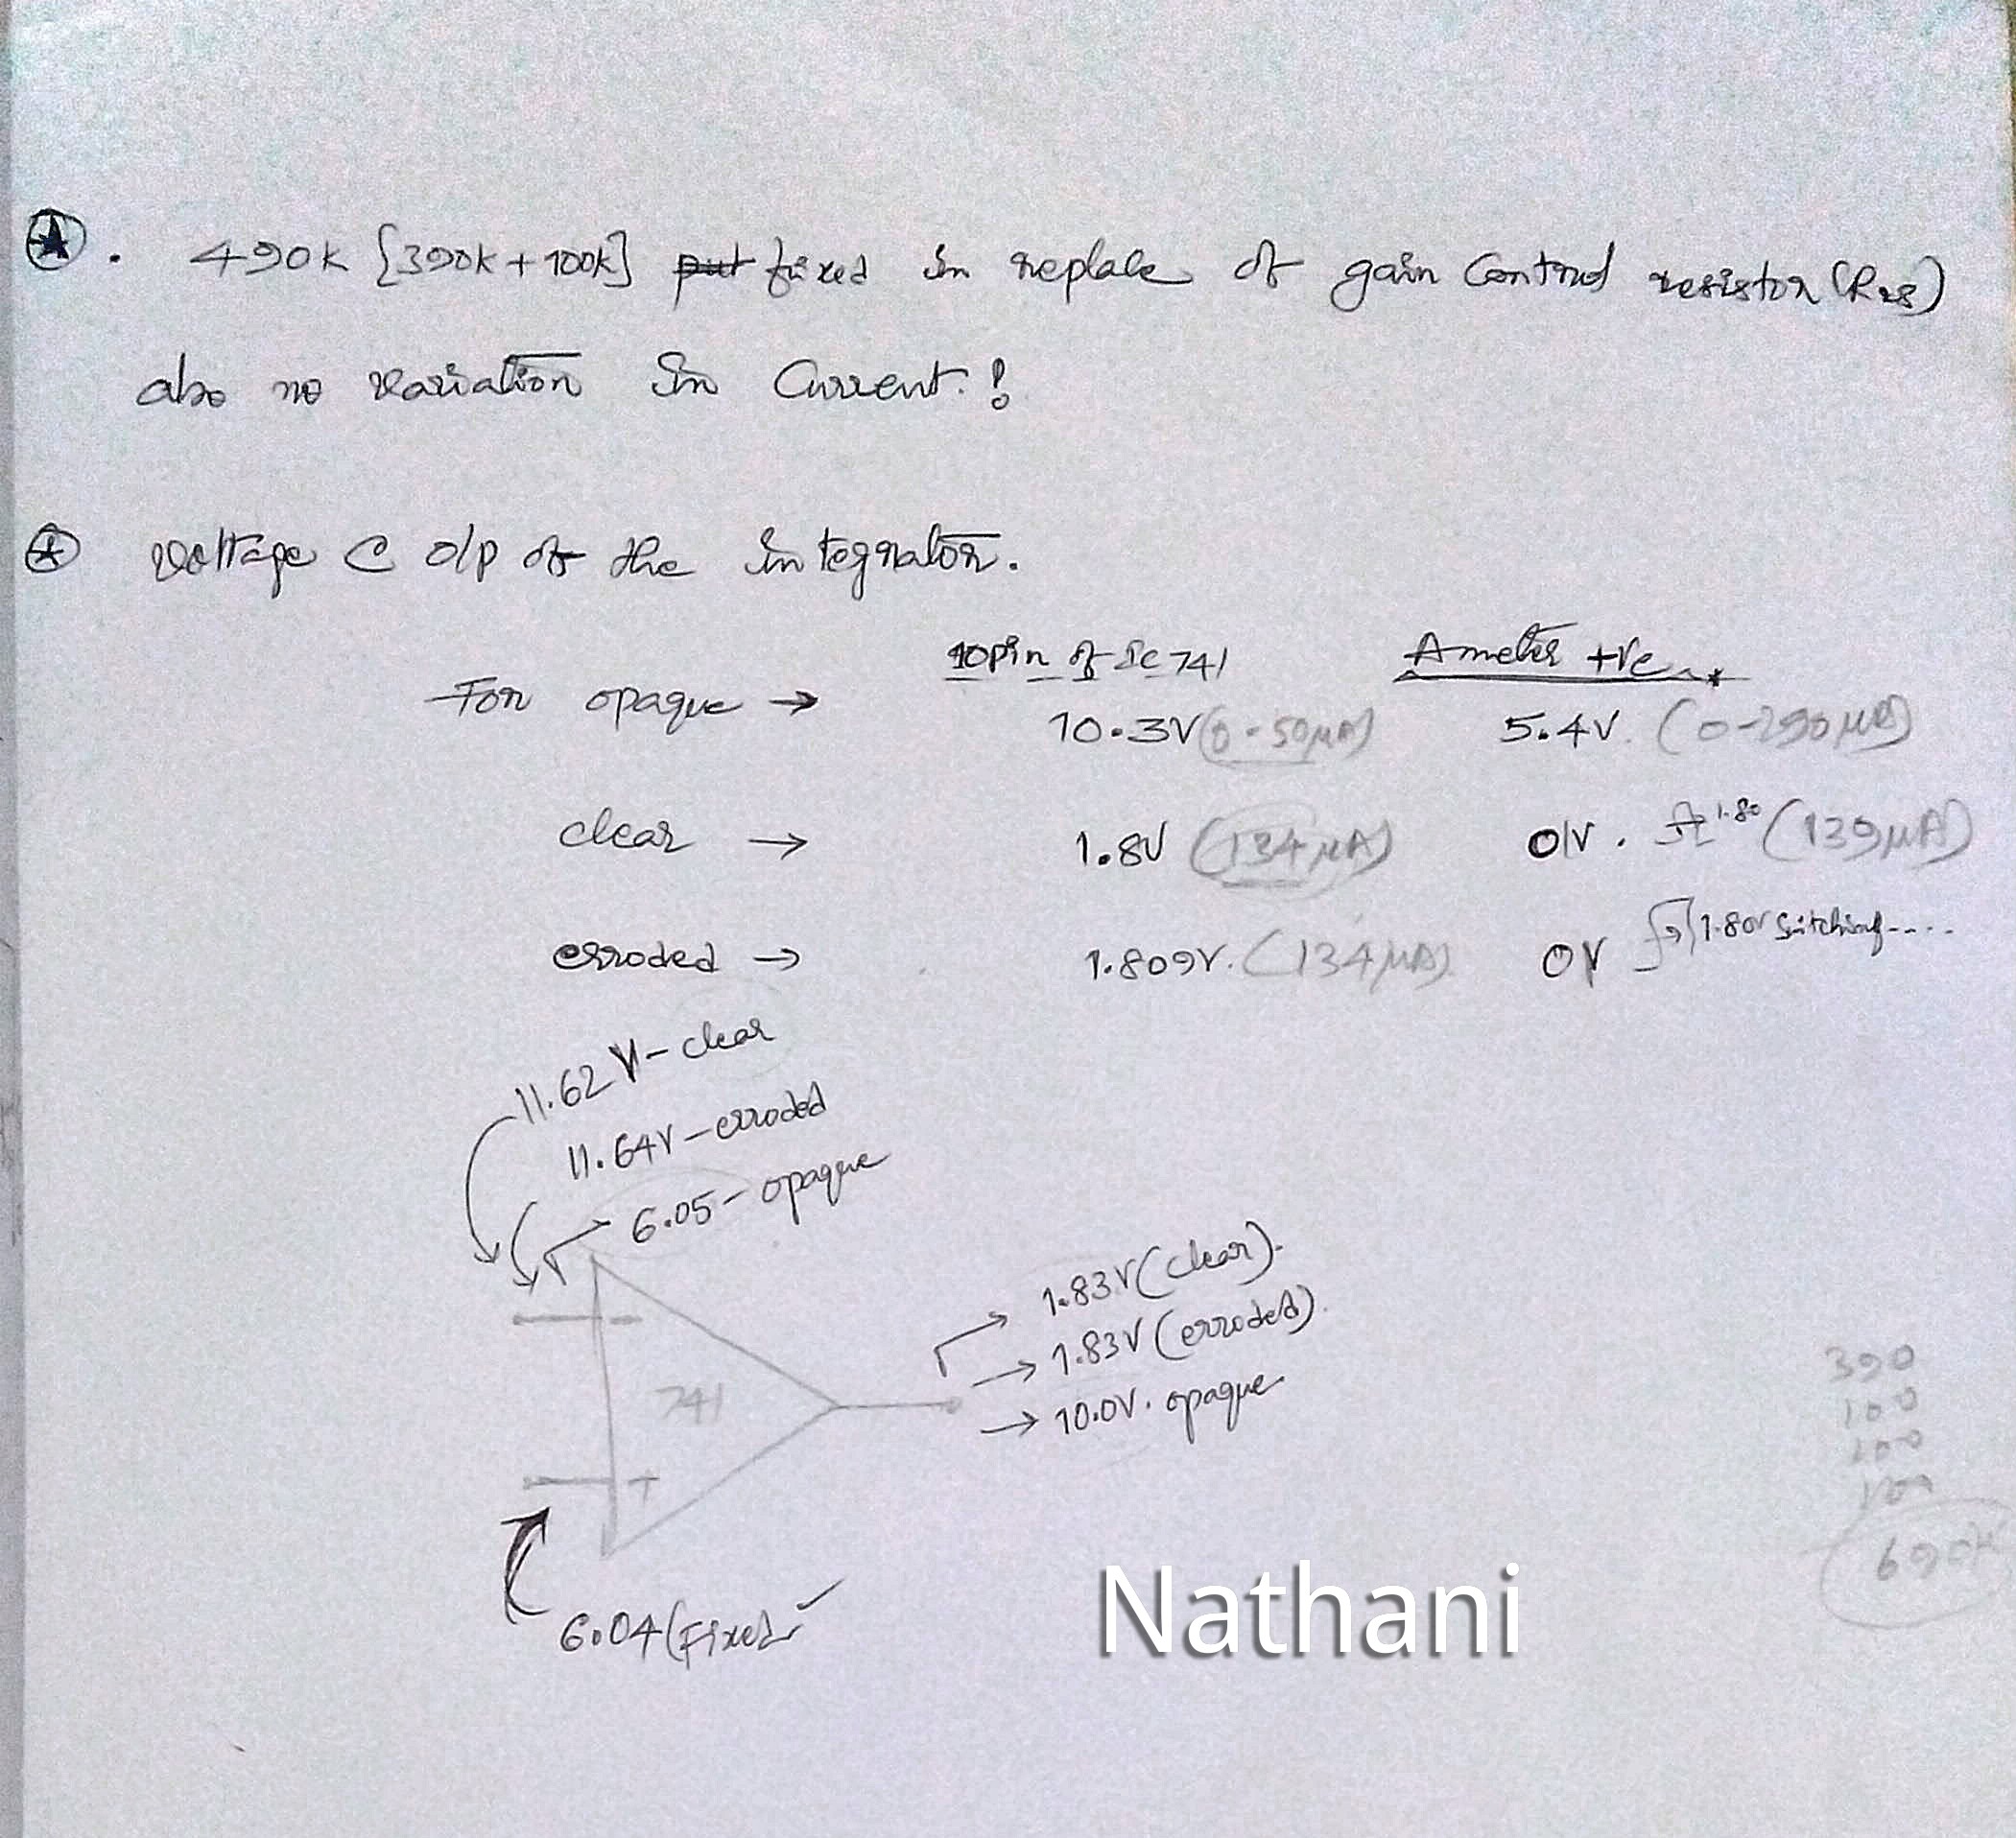 490k [390k+100k] put fixed in replace of gain Control resistor
also no variation in Current.!
voltage @ o/p of the integrator.
10pin of IC 741 Ameter +ve
For opaque → 10.3V (0-50μA) 5.4V. (0-290μA)
clear → 1.8V (134μA) 0V. 1.80 (139μA)
erroded → 1.809V. (134μA) 0V 1.80V
11.62V-clear
11.64V-erroded
6.05-opaque
→ 1.83V (clear).
→ 1.83V (erroded).
→ 10.0V. opaque
-
741
+
6.04 (Fixed
390
100
100
100
690k
Nathani